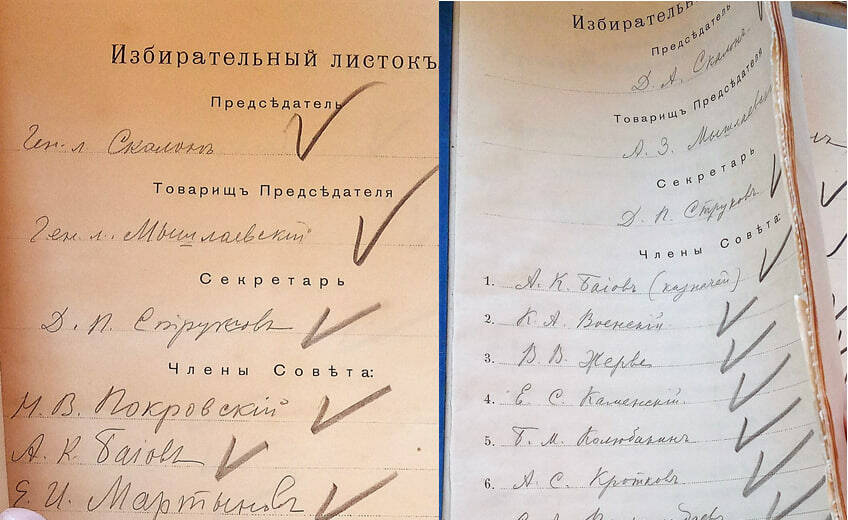 Избирательный листокъ
Предсѣдатель
Ген. л. Скалонъ
Товарищъ Предсѣдателя
Ген. л. Мышлаевскій
Секретарь
Д. П. Струковъ
Члены Совѣта:
Н. В. Покровскій
А. К. Баіовъ
Е. И. Мартыновъ
Избирательн
Предсѣдатель
Д. А. Скалонъ.
Товарищъ Предсѣдателя
А. З. Мышлаевскій
Секретарь
Д. П. Струковъ
Члены Совѣта:
1. А. К. Баіовъ (казначей)
2. К. А. Военскій
3. В. В. Жерве
4. Е. С. Каменскій
5. Б. М. Колюбакинъ
6. А. С. Кротковъ